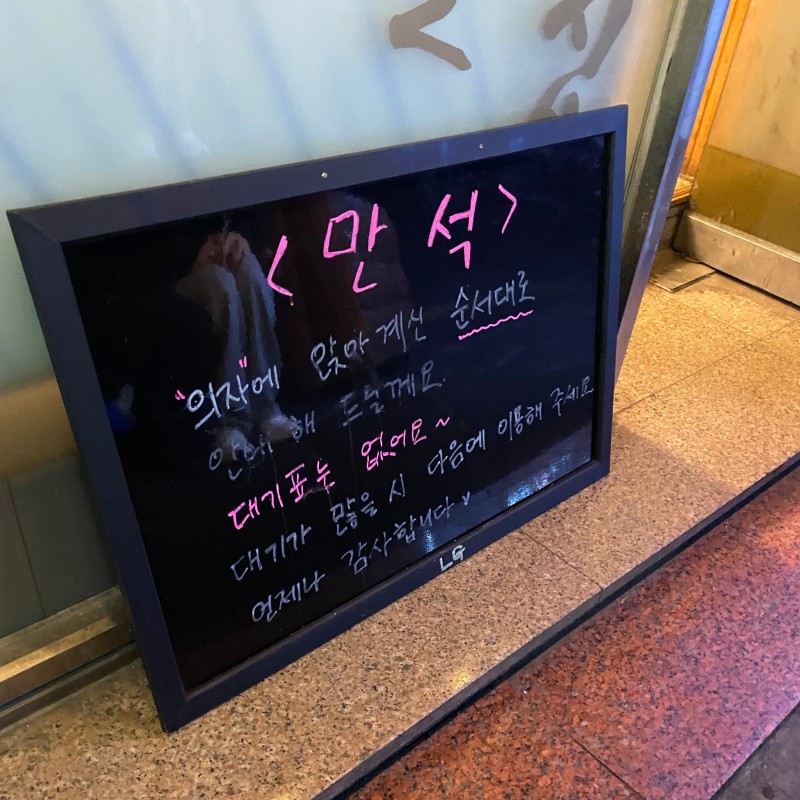 <만석>
"의자"에 앉아 계신 순서대로
안내 해 드릴께요.
대기표는 없어요~
대기가 많을 시 다음에 이용해 주세요
언제나 감사합니다♥
LG